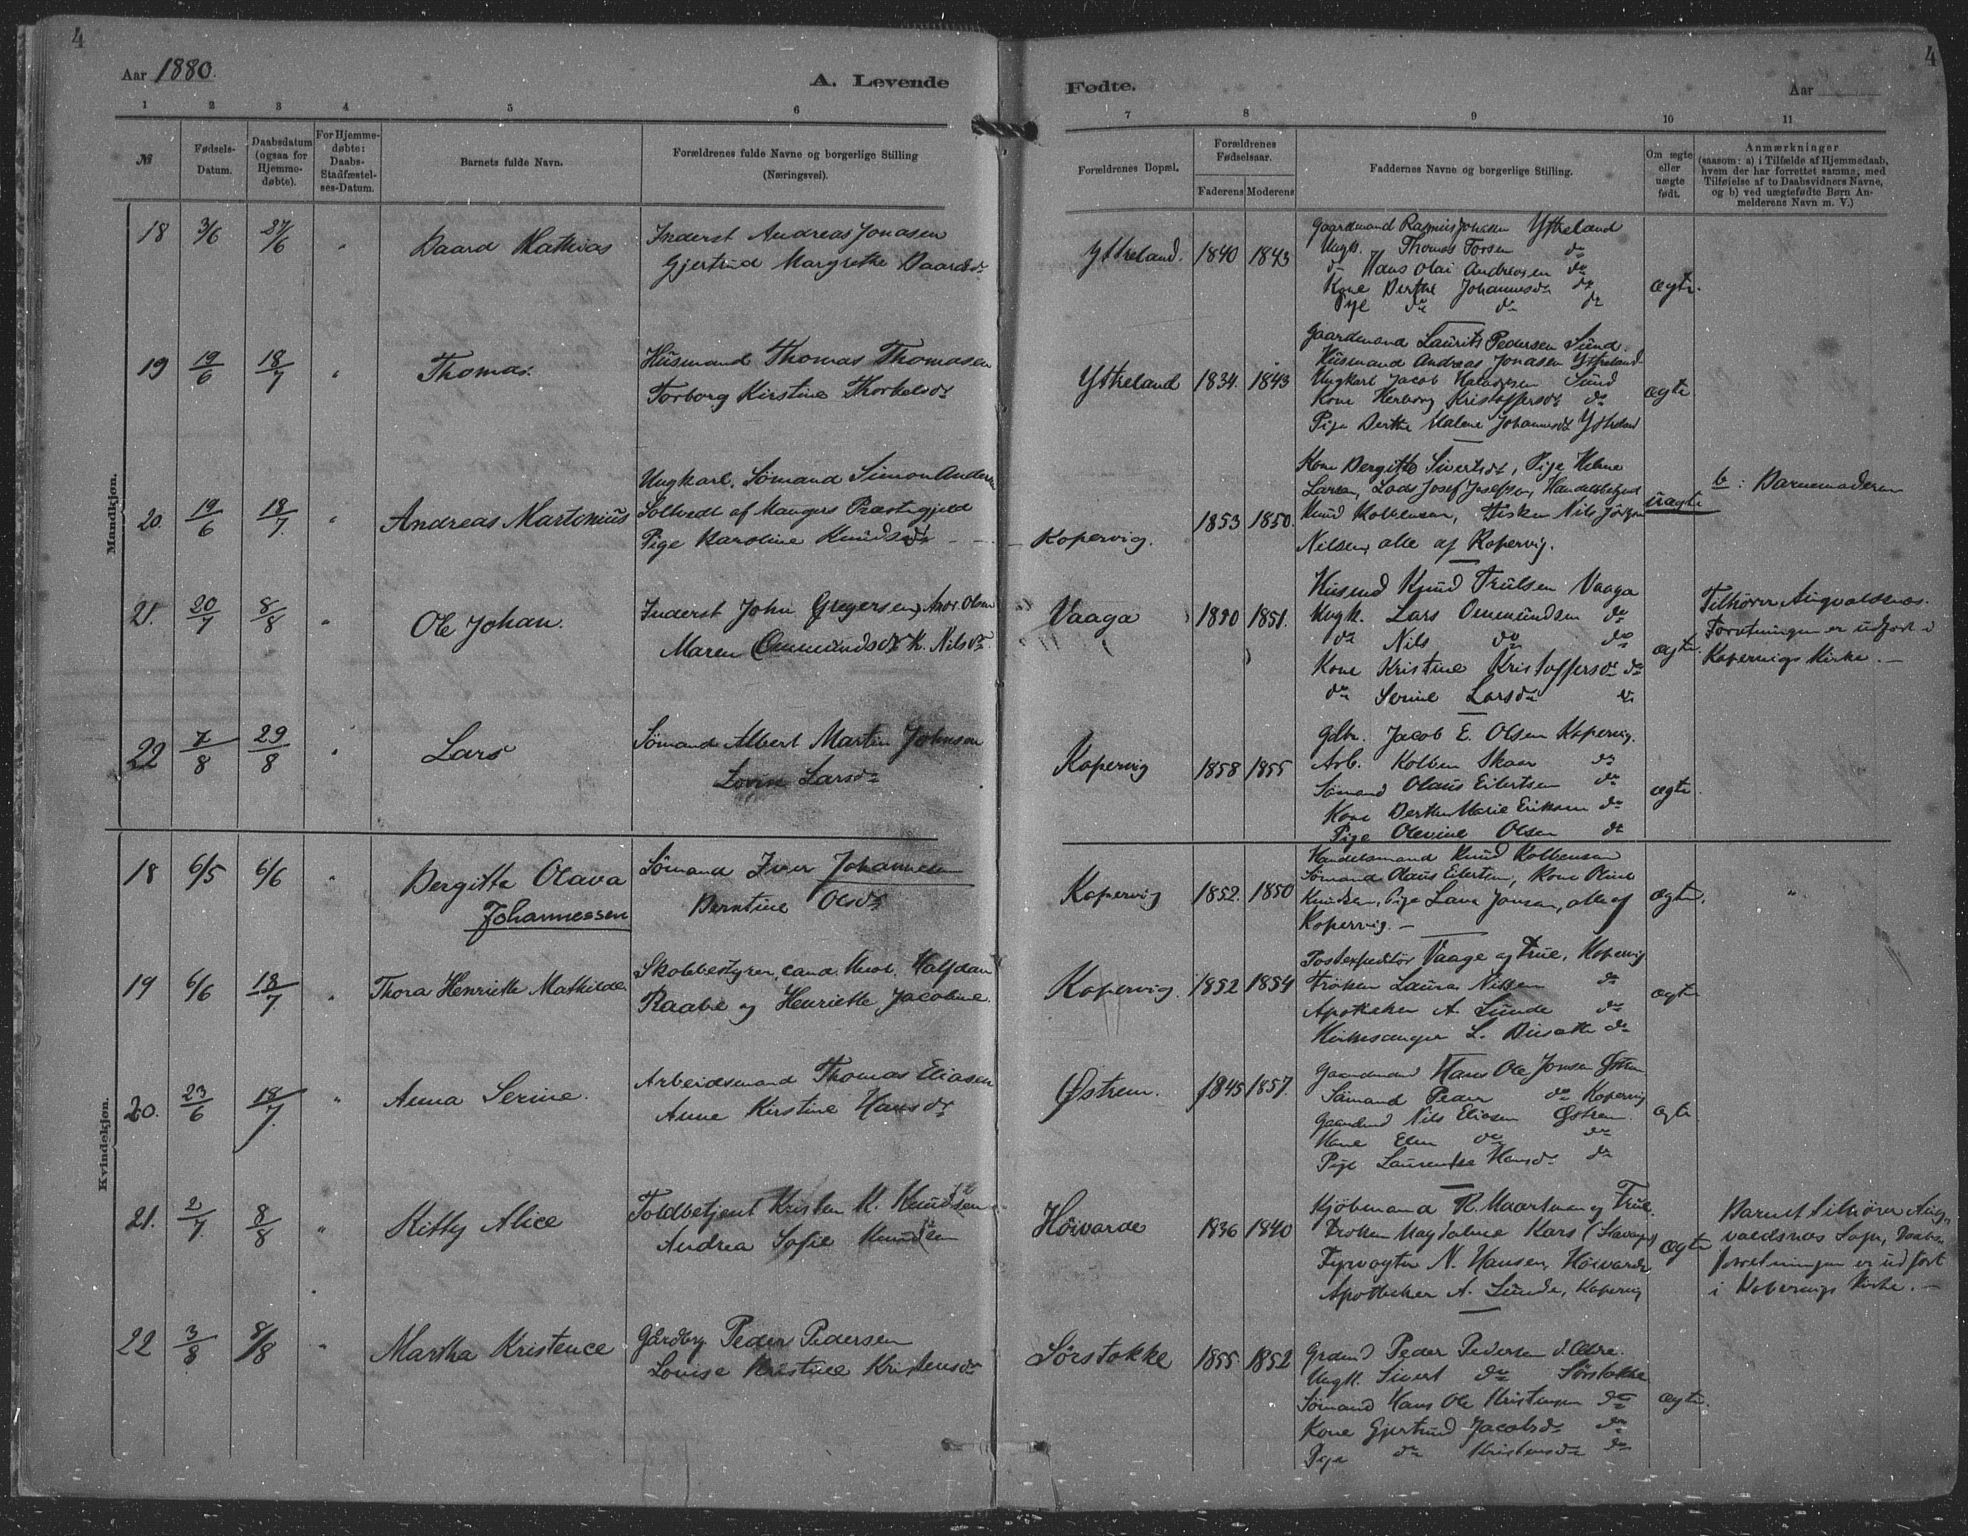 4
Aar 1880.
A. Levende
1 2 3 4 5 6
№
Fødsels-Datum.
Daabsdatum (ogsaa for Hjemmedøbte).
For Hjemmedøbte: Daabs-Stadfæstelses-Datum.
Barnets fulde Navn.
Forældrenes fulde Navne og borgerlige Stilling
(Næringsvei).
Mandkjøn.
18 3/6 27/6 " Baard Mathias
Inderst Andreas Jonasen
Gjertrud Margrethe Baardsdr
19 19/6 18/7 " Thomas.
Husmand Thomas Thomasen
Torborg Kirstine Thorkelsdr
20. 19/6 18/7. " Andreas Martinius
Ungkarl, Sømand Simon Anders
Solvedt af Mangers Præstegjeld
Pige Karoline Knudsdr
21. 20/7 8/8 " Ole Johan.
Inderst John Gregersen,
Maren Ommundsdr K. Nilsdr.
22 7/8 29/8 " Lars
Sømand Albert Martin Johnsen
Lovise Larsdr
Kvindekjøn.
18 6/5 6/6 " Bergitte Olava
Johannessen
Sømand Iver Johannesen
Berntine Olsdr
19 6/6 18/7. " Thora Henriette Mathilde
Skolebestyrer, cand. Halfdan
Raabe og Henriette Jacobine
20. 23/6 18/7. " Anna Serine.
Arbeidsmand Thomas Eliasen
Anne Kirstine Hansdr
21. 2/7. 8/8 " Kitty Alice
Toldbetjent Kristen M. Knudsen
Andrea Sofie Knudsen
22 3/8 8/8 " Martha Kristence
Gårdbr. Peder Pedersen
Lovise Kristine Kristensdr
4
Fødte.
Aar
7 8 9 10 11
Forældrenes Bopæl.
Forældrenes Fødselsaar.
Faderens Moderens
Faddernes Navne og borgerlige Stilling.
Om ægte eller uægte født.
Anmærkninger
(saasom: a) i Tilfælde af Hjemmedaab,
hvem der har forrettet samme, med
Tilføielse af to Daabsvidners Navne,
og b) ved uægtefødte Børn Anmelderens Navn m. V.)
Ytreland. 1840 1843 ægte.
Gaardmand Rasmus Johnsen Ytreland
Ungk. Thomas Torsen do
do Hans Olai Andreasen do
Kone Berthe Johannesdr do
Pige do do do
Ytreland 1834. 1843 ægte
Gaardmand Laurits Pedersen Sund.
Husmand Andreas Jonasen Ytreland
Ungkarl Jacob Sund
Kone Herborg Kristoffersdr do
Pige Berthe Malene Johannesdr Ytreland
Kopervig. 1853 1850. uægte b: Barnemoderen
Kone Bergitte Sivertsdr, Pige Helene
Larsen, Lods Josef Josefsen, Handelsbetjent
Knud Kolbensen, Fisker Nils Jørgen
Nilsen, alle af Kopervig.
Vaaga 1850 1851. ægte.
Husmd Knud Trulsen Vaaga
Ungk. Lars Ommundsen do
do Nils do do
Kone Kristine Kristoffersdr do
do Serine Larsdr do
Tilhører Augvaldsnæs.
Forretningen er udført i
Kopervigs Kirke. —
Kopervig 1858 1855 ægte
Gdbr. Jacob E. Olsen Kopervig.
Arb. Kolben Skaar do
Sømand Olaus Eilertsen do
Kone Berthe Marie Eriksen do
Pige Olevine Olsen do
Kopervig 1852. 1850 ægte. "
Handelsmand Knud Kolbensen
Sømand Olaus Eilertsen, Kone Oline
Knudsen, Pige Lava Jonsen, alle af
Kopervig. —
Kopervig. 1852 1854 ægte
Postexpeditør Vaage og Frue, Kopervig
Frøken Laura Nissen do
Apotheker A. Lunde do
Kirkesanger L. do
Østrem. 1845 1857. ægte
Gaardmand Hans Ole Jonsen Østrem
Sømand Peder do Kopervig
Gaardmd Nils Eliasen Østrem
Kone Elen do do
Pige Laurentse Hansdr do
Høivarde 1836 1840 ægte
Kjøbmand R. Maartman og Frue.
Frøken Magdalene Kars (Stavanger)
Fyrvogter N. Hansen, Høivarde
Apotheker A. Lunde, Kopervig
Barnet tilhører Aug-
valdsnæs Sogn, Daabs-
forretningen er udført
i Kopervigs Kirke. —
Sørstokke 1855 1852 ægte.
Grdmd Peder Pedersen d. Ældre.
Ungk. Sivert do Sørstokke
Sømand Hans Ole Kristensen do
Kone Gjertrud Jacobsdr do
Pige do Kristensdr do